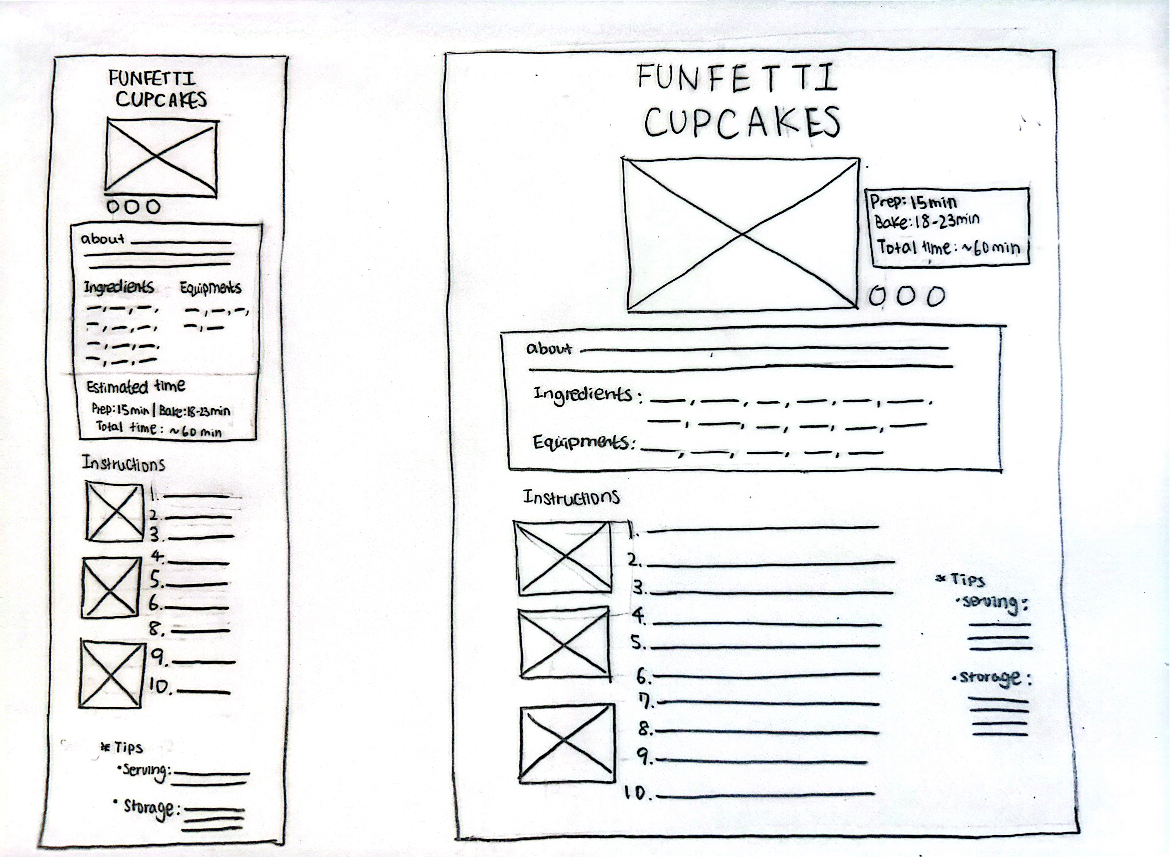 FUNFETTI
CUPCAKES
about
Ingredients
Equipments
Estimated time
Prep: 15 min | Bake: 18-23min
Total time: ~60 min
Instructions
1.
2.
3.
4.
5.
6.
8.
9.
10.
* Tips
• Serving:
• Storage:
FUNFETTI
CUPCAKES
Prep: 15 min
Bake: 18-23min
Total time: ~60 min
about
Ingredients:
Equipments:
Instructions
1.
2.
3.
4.
5.
6.
7.
8.
9.
10.
* Tips
• serving:
• storage: